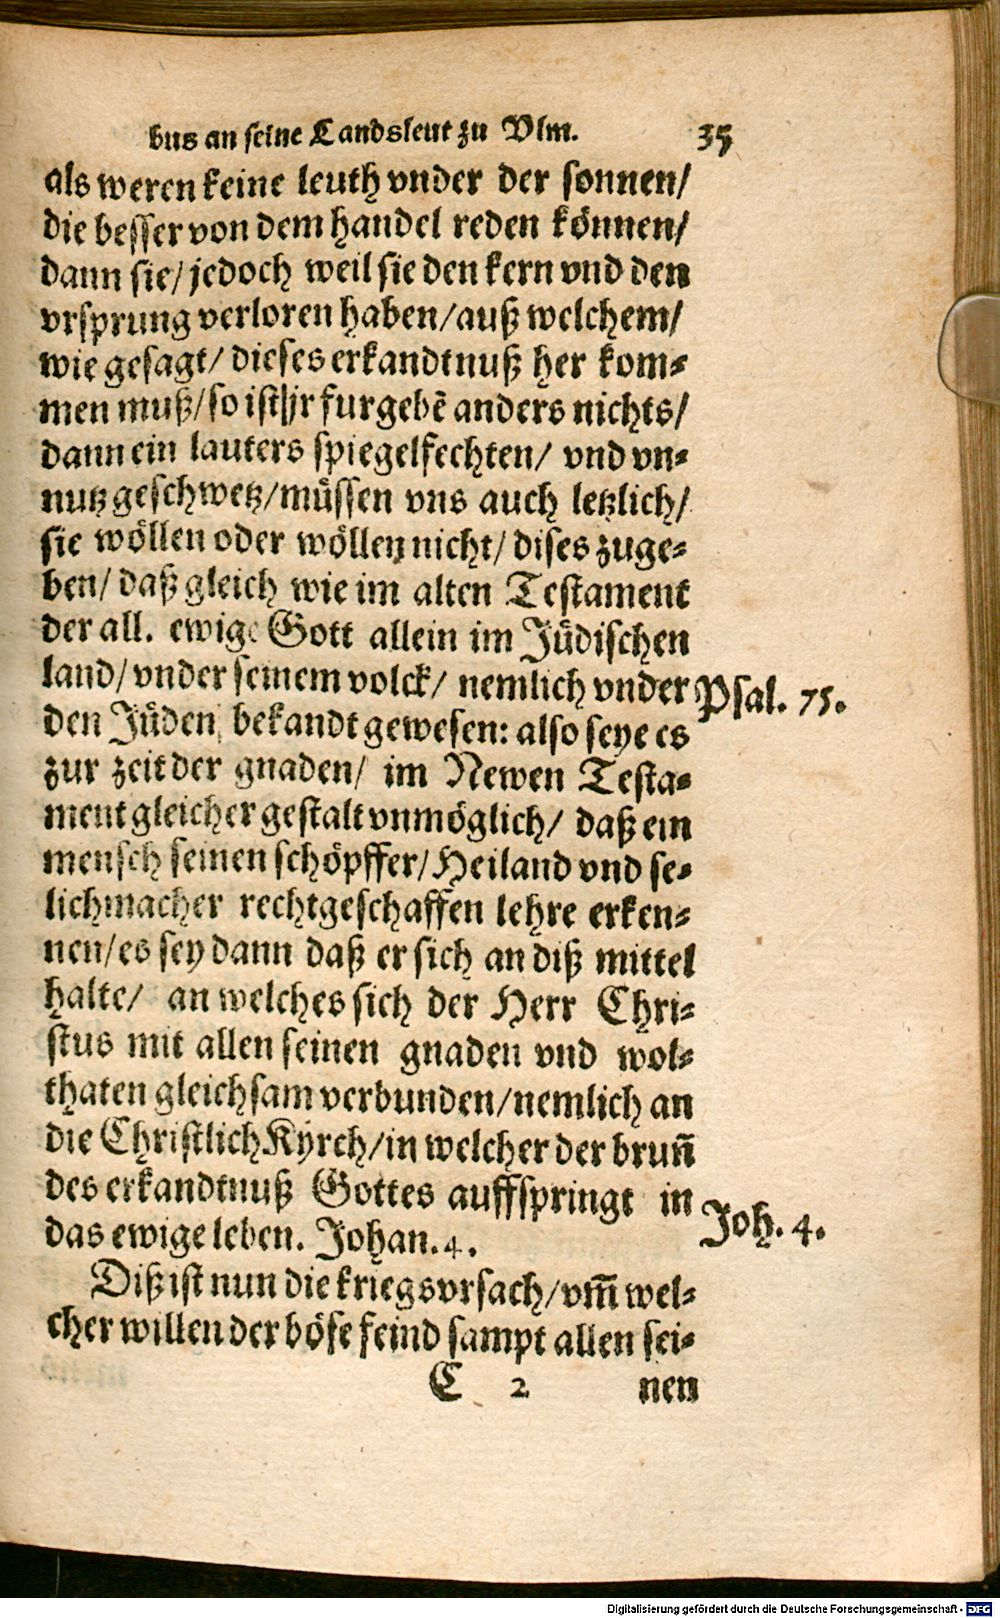 bus an seine Landsleut zu Vlm. 35
als weren keine leuth vnder der sonnen/
die besser von dem handel reden können/
dann sie/ jedoch weil sie den kern vnd den
vrsprung verloren haben/ auß welchem/
wie gesagt/ dieses erkandtnuß her kom⸗
men muß/ so ist jr furgebē anders nichts/
dann ein lauters spiegelfechten/ vnd vn⸗
nutz geschwetz/ müssen vns auch letzlich/
sie wöllen oder wöllen nicht/ dises zuge⸗
ben/ daß gleich wie im alten Testament
der all. ewige Gott allein im Jüdischen
land/ vnder seinem volck/ nemlich vnder Psal. 75.
den Jüden, bekandt gewesen: also seye es
zur zeit der gnaden/ im Newen Testa⸗
ment gleicher gestalt vnmöglich/ daß ein
mensch seinen schöpffer/ Heiland vnd se⸗
lichmacher rechtgeschaffen lehre erken⸗
nen/ es sey dann daß er sich an diß mittel
halte/ an welches sich der Herr Chri⸗
stus mit allen seinen gnaden vnd wol⸗
thaten gleichsam verbunden/ nemlich an
die Christlich Kyrch/ in welcher der brun̄
des erkandtnuß Gottes auffspringt in
das ewige leben. Johan. 4. Joh. 4.
Diß ist nun die kriegsvrsach/ vm̄ wel⸗
cher willen der böse feind sampt allen sei⸗
C 2 nen
Digitalisierung gefördert durch die Deutsche Forschungsgemeinschaft - DFG